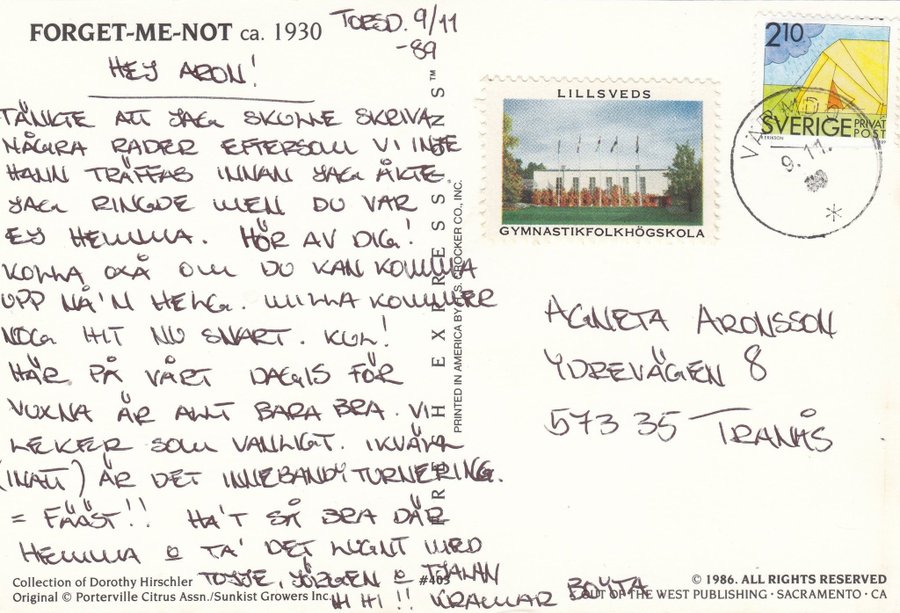 FORGET-ME-NOT ca. 1930
TORSD. 9/11
-89
HEJ ARON!
TÄNKTE ATT JAG SKULLE SKRIVA
NÅGRA RADER EFTERSOM VI INTE
HANN TRÄFFAS INNAN JAG ÅKTE.
JAG RINGDE MEN DU VAR
EJ HEMMA. HÖR AV DIG!
KOLLA OXÅ OM DU KAN KOMMA
UPP NÅ'N HELG. MILLA KOMMER
NOG HIT NU SNART. KUL!
HÄR PÅ VÅRT DAGIS FÖR
VUXNA ÄR ALLT BARA BRA. VI
LEKER SOM VANLIGT. IKVÄLL
(INATT) ÄR DET INNEBANDYTURNERING.
= FÄÄST!! HA'T SÅ BRA DÄR
HEMMA o TA' DET LUGNT MED
JÖRGEN o TJALAN
HI HI!! KRAMAR
Collection of Dorothy Hirschler
Original © Porterville Citrus Assn./Sunkist Growers Inc.
#403
PRINTED IN AMERICA BY H.S. CROCKER CO., INC.
LILLSVEDS
GYMNASTIKFOLKHÖGSKOLA
2 10
SVERIGE PRIVAT
POST
9.11.
AGNETA ARONSSON
YDREVÄGEN 8
573 35 TRANÅS
© 1986. ALL RIGHTS RESERVED
OUT OF THE WEST PUBLISHING • SACRAMENTO • CA